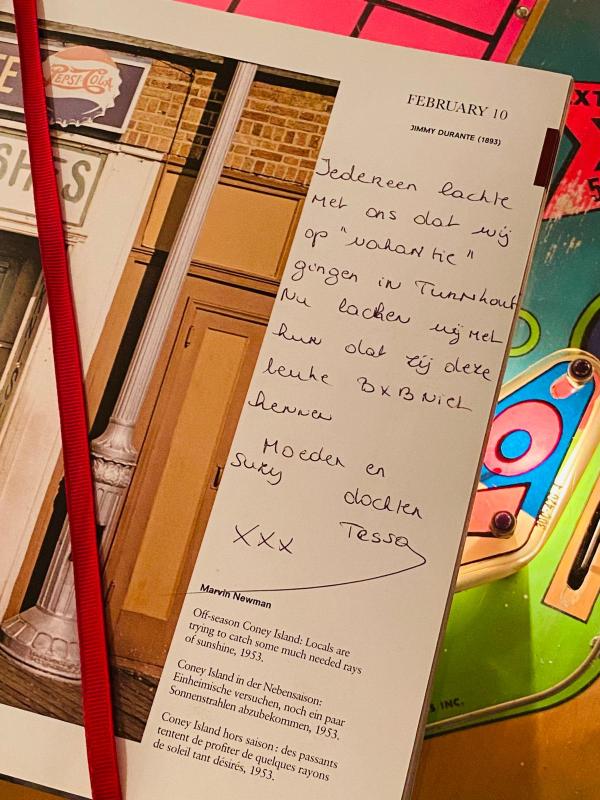 E
PEPSI-COLA
SHES
FEBRUARY 10
JIMMY DURANTE (1893)
Iedereen lachte
met ons dat wij
op "vakantie"
gingen in Turnhout
Nu lachen wij met
hun dat zij deze
leuke BxB niet
kennen
Moeder en
Suzy
dochter
Tessa
XXX
Marvin Newman
Off-season Coney Island: Locals are
trying to catch some much needed rays
of sunshine, 1953.
Coney Island in der Nebensaison:
Einheimische versuchen, noch ein paar
Sonnenstrahlen abzubekommen, 1953.
Coney Island hors saison : des passants
tentent de profiter de quelques rayons
de soleil tant désirés, 1953.
INC.